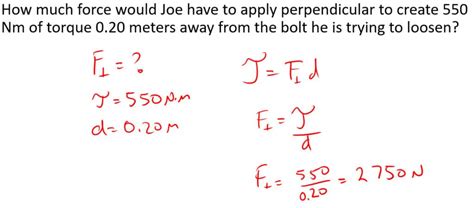 How much force would Joe have to apply perpendicular to create 550
Nm of torque 0.20 meters away from the bolt he is trying to loosen?
F⊥ = ?
τ = 550 N·m
d = 0.20 m
τ = F⊥ d
F⊥ = τ / d
F⊥ = 550 / 0.20 = 2750 N